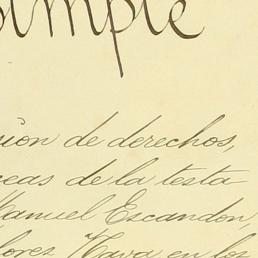 simple
sion de derechos,
ceas de la testa
Manuel Escandon,
lores Nava en los